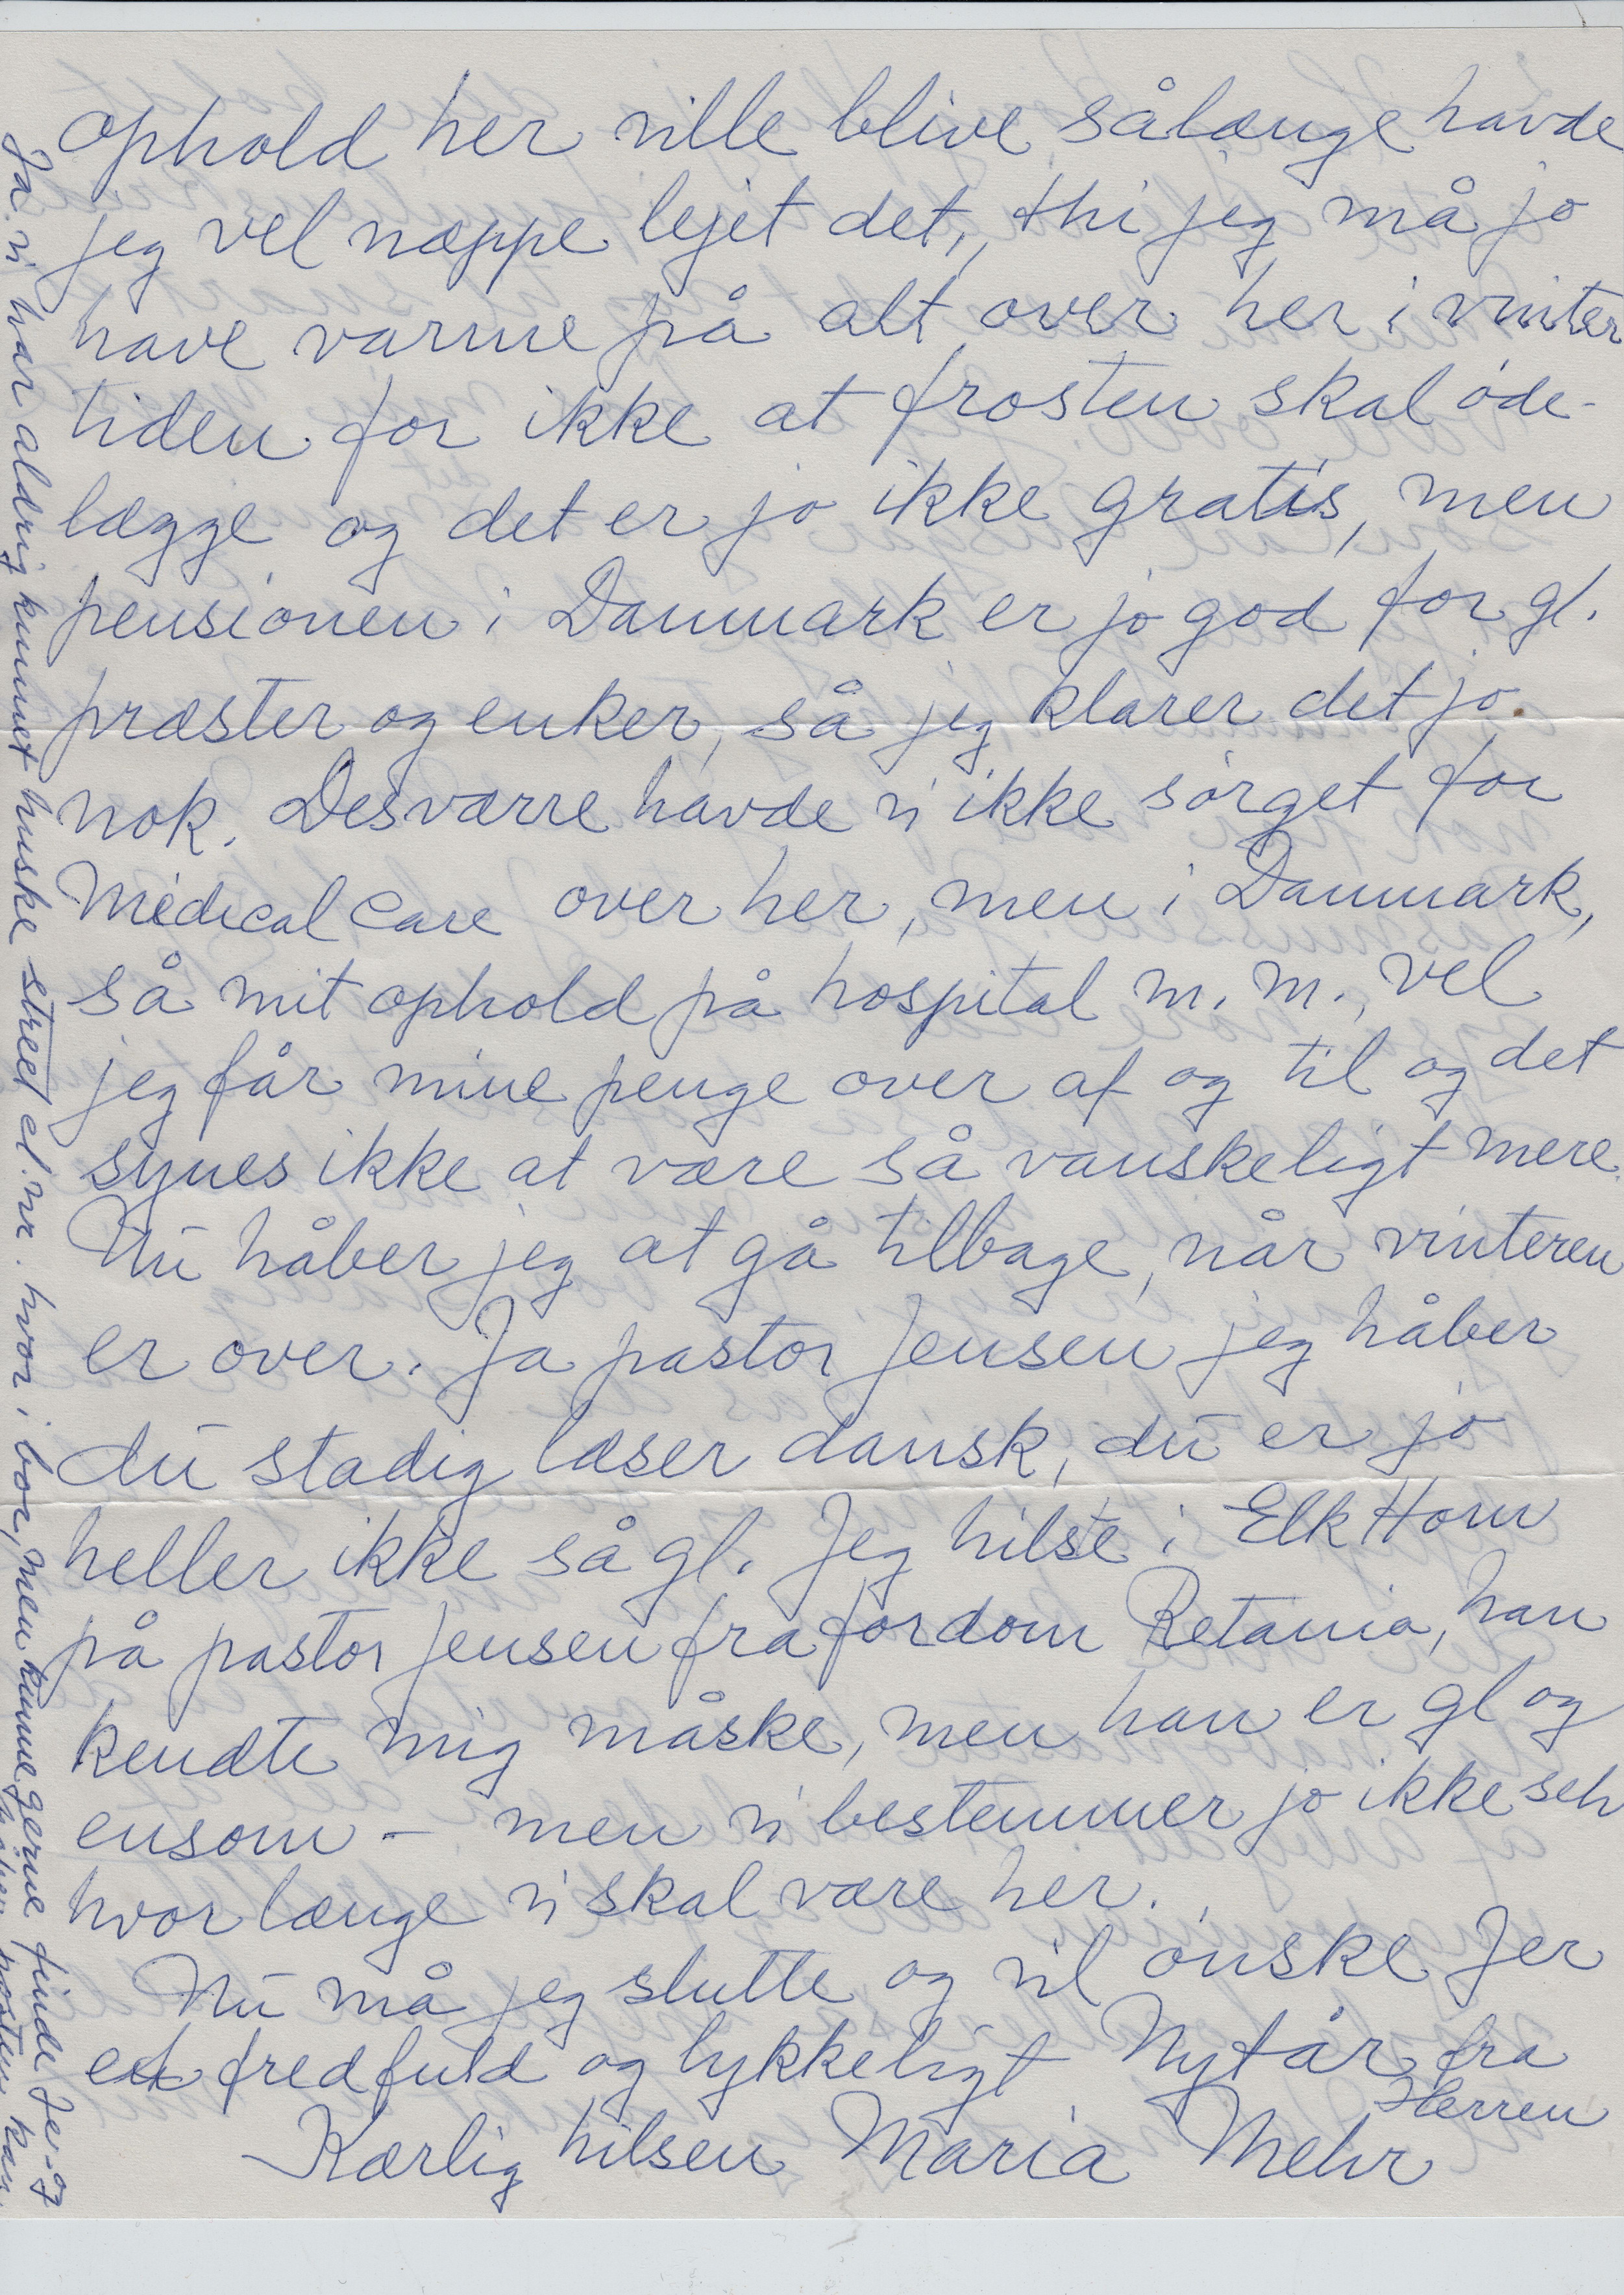 ophold her ville blive sålænge havde
jeg vel næppe lejet det, thi jeg må jo
have varme på alt over her i vinter
tiden for ikke at frosten skal øde-
lægge og det er jo ikke gratis, men
pensionen i Danmark er jo god for gl.
præster og enker, så jeg klarer det jo
nok. Desværre havde vi ikke sørget for
Medical Care over her, men i Danmark,
så mit ophold på hospital m. m., vel
jeg får mine penge over af og til og det
synes ikke at være så vanskeligt mere.
Nu håber jeg at gå tilbage, når vinteren
er over. Ja pastor Jensen jeg håber
du stadig læser dansk, du er jo
heller ikke så gl. Jeg hilste i Elk Horn
på pastor Jensen fra fordom Betania, han
kendte mig måske, men han er gl og
ensom - men vi bestemmer jo ikke selv
hvor længe vi skal være her.
Nu må jeg slutte og vil ønske Jer
et fredfuld og lykkeligt Nytår fra
Herren
Kærlig hilsen Maria Mehr
Ja. vi har aldrig kunnet huske street el. nr. hvor i bor, men kunne gerne finde Jer. og
posten kan